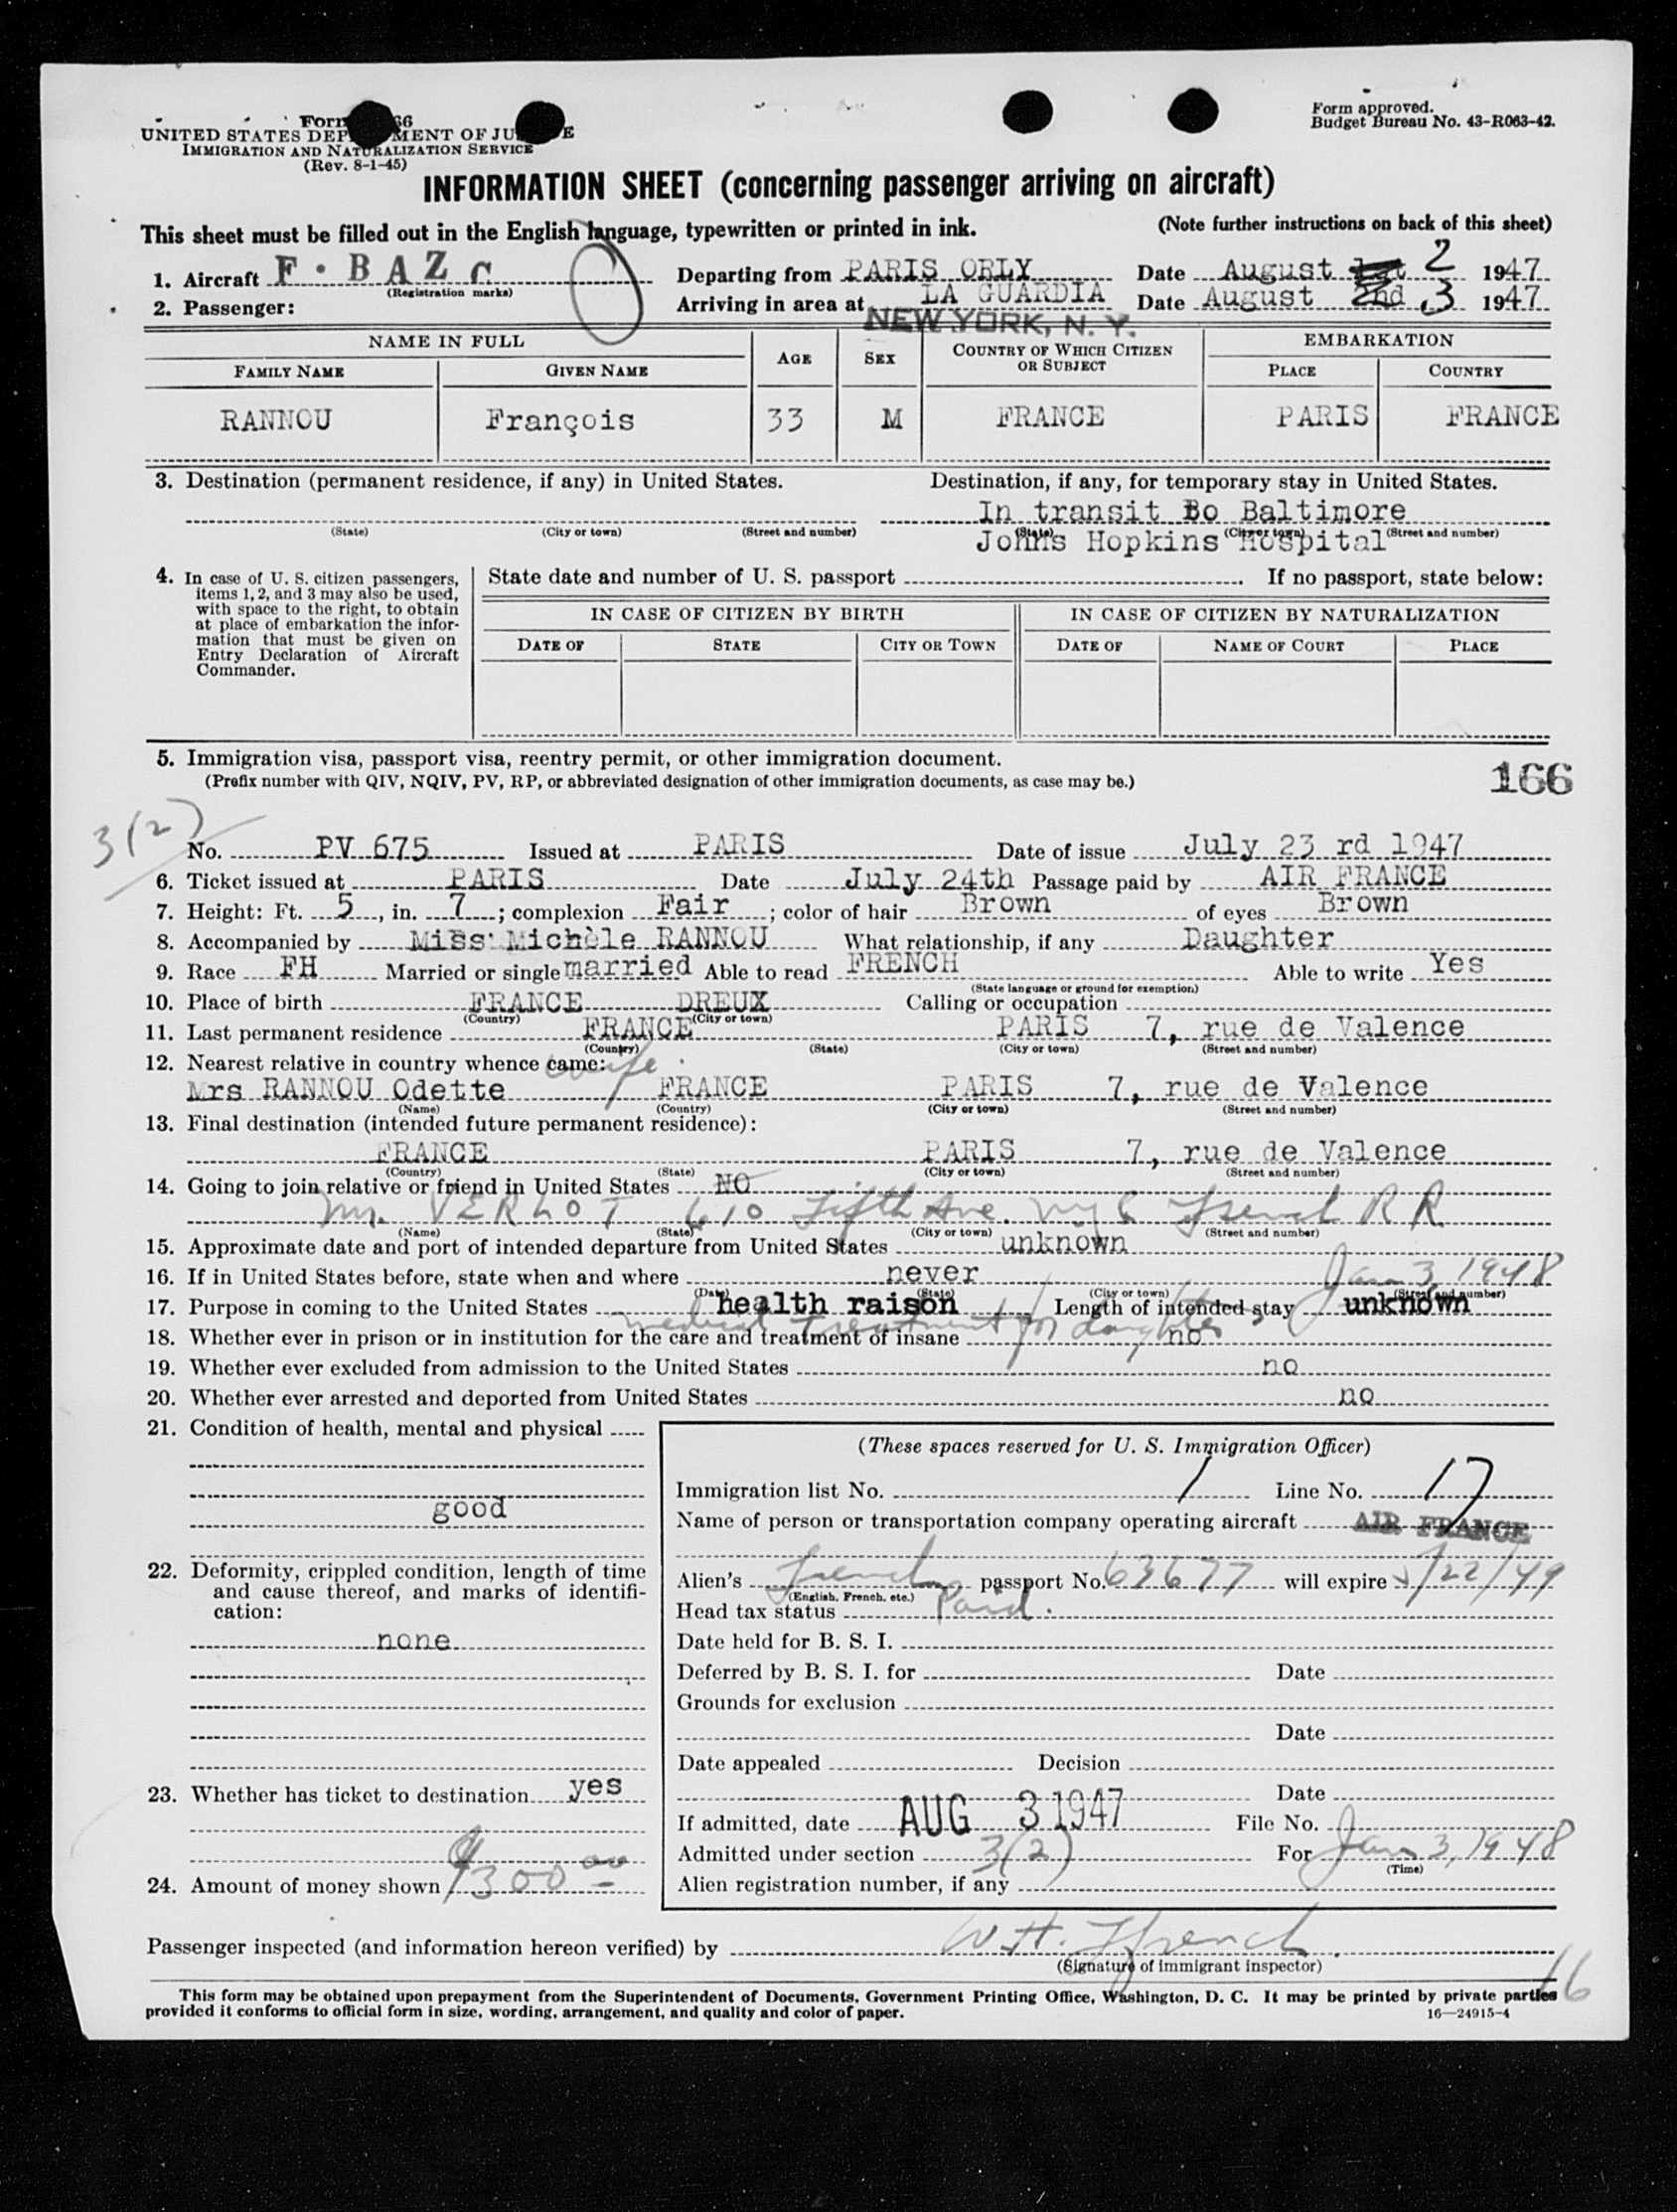 Form 66
UNITED STATES DEP MENT OF JU E
IMMIGRATION AND NATURALIZATION SERVICE
(Rev. 8-1-45)
Form approved.
Budget Bureau No. 43-R063-42.
INFORMATION SHEET (concerning passenger arriving on aircraft)
This sheet must be filled out in the English language, typewritten or printed in ink. (Note further instructions on back of this sheet)
1. Aircraft F · B A Z C Departing from PARIS ORLY Date August 1st 2 1947
(Registration marks)
2. Passenger: Arriving in area at LA GUARDIA Date August 2nd 3 1947
NEW YORK, N. Y.
NAME IN FULL AGE SEX COUNTRY OF WHICH CITIZEN OR SUBJECT EMBARKATION
FAMILY NAME GIVEN NAME PLACE COUNTRY
RANNOU François 33 M FRANCE PARIS FRANCE
3. Destination (permanent residence, if any) in United States. Destination, if any, for temporary stay in United States.
In transit Bo Baltimore
(State) (City or town) (Street and number) (State) (City or town) (Street and number)
Johns Hopkins Hospital
4. In case of U. S. citizen passengers, items 1, 2, and 3 may also be used, with space to the right, to obtain at place of embarkation the information that must be given on Entry Declaration of Aircraft Commander.
State date and number of U. S. passport . If no passport, state below:
IN CASE OF CITIZEN BY BIRTH IN CASE OF CITIZEN BY NATURALIZATION
DATE OF STATE CITY OR TOWN DATE OF NAME OF COURT PLACE
5. Immigration visa, passport visa, reentry permit, or other immigration document.
(Prefix number with QIV, NQIV, PV, RP, or abbreviated designation of other immigration documents, as case may be.)
166
3(2)
No. PV 675 Issued at PARIS Date of issue July 23 rd 1947
6. Ticket issued at PARIS Date July 24th Passage paid by AIR FRANCE
7. Height: Ft. 5, in. 7; complexion Fair; color of hair Brown of eyes Brown
8. Accompanied by Miss Michèle RANNOU What relationship, if any Daughter
9. Race FH Married or single married Able to read FRENCH Able to write Yes
(State language or ground for exemption)
10. Place of birth FRANCE DREUX Calling or occupation
(Country) (City or town)
11. Last permanent residence FRANCE PARIS 7, rue de Valence
(Country) (State) (City or town) (Street and number)
12. Nearest relative in country whence came: wife
Mrs RANNOU Odette FRANCE PARIS 7, rue de Valence
(Name) (Country) (City or town) (Street and number)
13. Final destination (intended future permanent residence):
FRANCE PARIS 7, rue de Valence
(Country) (State) (City or town) (Street and number)
14. Going to join relative or friend in United States NO
Mr. VERLOT 610 Fifth Ave. NYC French R R
(Name) (State) (City or town) (Street and number)
15. Approximate date and port of intended departure from United States unknown
16. If in United States before, state when and where never Jan 3, 1948
(Date) (State) (City or town) (Street and number)
17. Purpose in coming to the United States health raison Length of intended stay unknown
medical treatment for daughter
18. Whether ever in prison or in institution for the care and treatment of insane no
19. Whether ever excluded from admission to the United States no
20. Whether ever arrested and deported from United States no
21. Condition of health, mental and physical
good
22. Deformity, crippled condition, length of time and cause thereof, and marks of identification:
none
23. Whether has ticket to destination yes
24. Amount of money shown $300 00
(These spaces reserved for U. S. Immigration Officer)
Immigration list No. 1 Line No. 17
Name of person or transportation company operating aircraft AIR FRANCE
Alien's French passport No. 63677 will expire 5/22/49
(English, French, etc.)
Head tax status Paid.
Date held for B. S. I.
Deferred by B. S. I. for Date
Grounds for exclusion
Date
Date appealed Decision
Date
If admitted, date AUG 3 1947 File No.
Admitted under section 3(2) For Jan 3, 1948
(Time)
Alien registration number, if any
Passenger inspected (and information hereon verified) by W. H. French
(Signature of immigrant inspector)
16
This form may be obtained upon prepayment from the Superintendent of Documents, Government Printing Office, Washington, D. C. It may be printed by private parties
provided it conforms to official form in size, wording, arrangement, and quality and color of paper. 16—24915-4